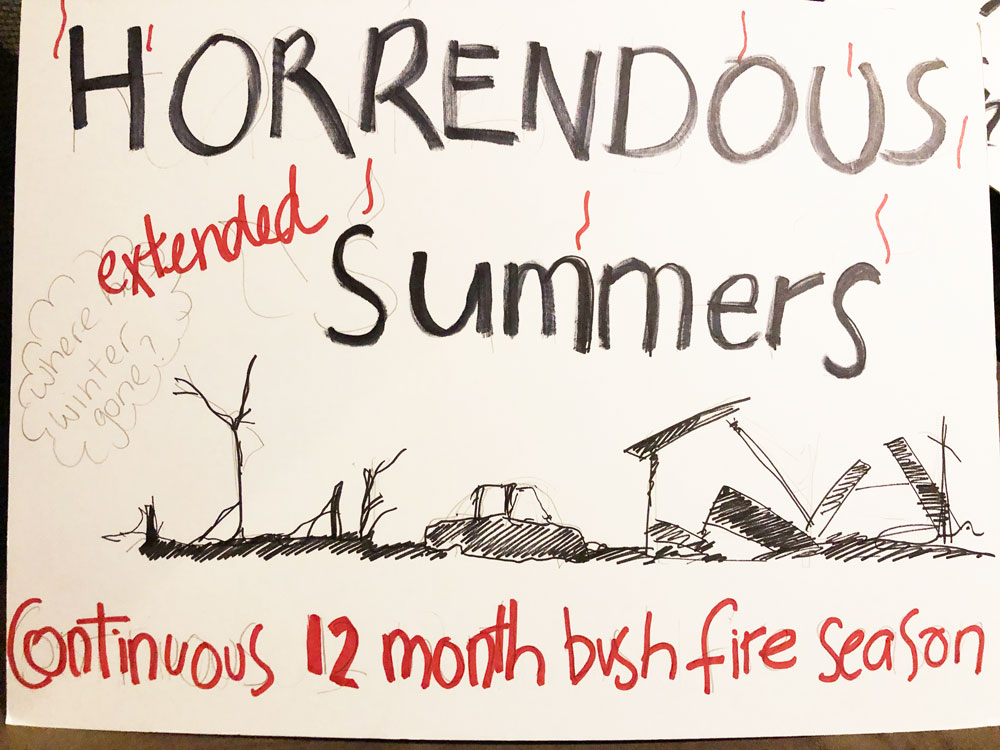 HORRENDOUS
extended
Summers
where has
winter
gone?
Continuous 12 month bush fire season